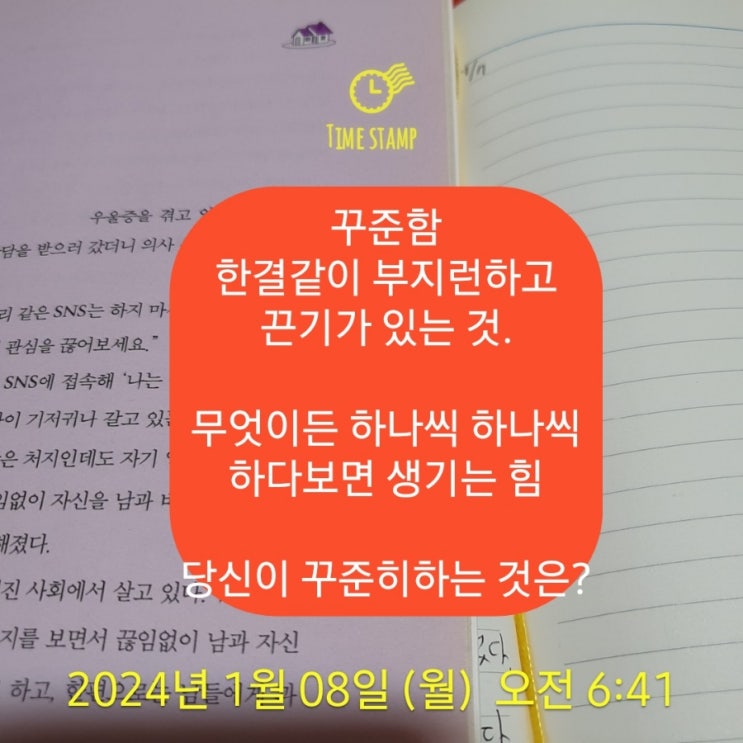 TIME STAMP
우울증을 겪고
담을 받으러 갔더니 의사
꾸준함
한결같이 부지런하고
끈기가 있는 것.
무엇이든 하나씩 하나씩
하다보면 생기는 힘
당신이 꾸준히하는 것은?
같은 SNS는 하지
관심을 끊어보세요.”
SNS에 접속해 ‘나는
기저귀나 갈고
처지인데도 자기
없이 자신을 남과
해졌다.
사회에서 살고 있다.
보면서 끊임없이 남과 자신
하고,
2024년 1월 08일 (월) 오전 6:41